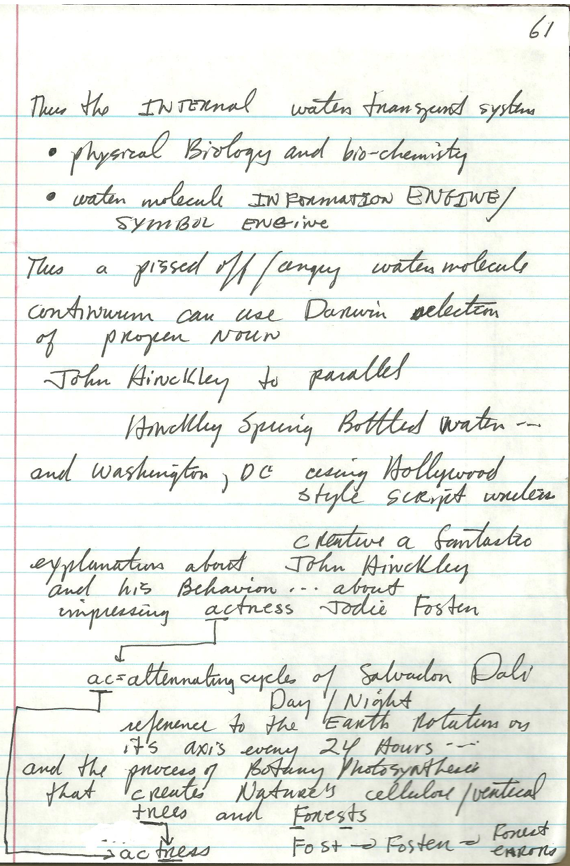 61
Thus the INTERNAL water transport system
• physical Biology and bio-chemisty
• water molecule INFORMATION ENGINE/
SYMBOL ENGINE
Thus a pissed off/angry water molecule
continuum can use Darwin selection
of proper NOUN
John Hinckley to parallel
Hinckley Spring Bottled water ---
and Washington, DC using Hollywood
style script writers
creative a fantastic
explanation about John Hinckley
and his Behavior ... about
impressing actress Jodie Foster
ac = alternating cycles of Salvador Dali
Day / Night
reference to the Earth Rotation on
it's axis every 24 Hours ---
and the process of Botany Photosynthesis
that creates Nature's cellulose/vertical
trees and Forests
actress Fost → Foster → Forest
errors